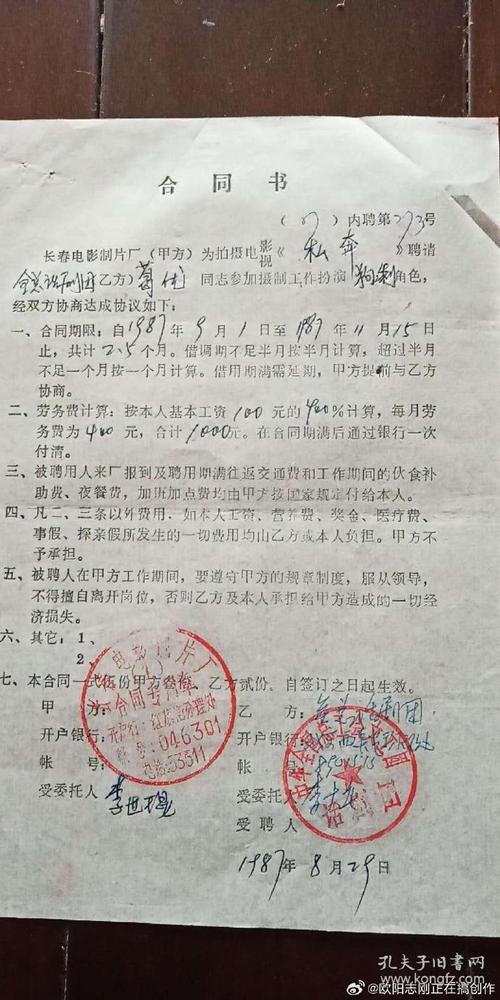 合同书
(87)内聘第273号
长春电影制片厂(甲方)为拍摄电影视《私奔》聘请
全总话剧团(乙方)葛优同志参加摄制工作扮演狗剩角色,
经双方协商达成协议如下:
一、合同期限:自1987年9月1日至1987年11月15日
止,共计2.5个月。借调期不足半月按半月计算,超过半月
不足一个月按一个月计算。借用期满需延期,甲方提前与乙方
协商。
二、劳务费计算:按本人基本工资100元的400%计算,每月劳
务费为400元,合计1000元。在合同期满后通过银行一次
付清。
三、被聘用人来厂报到及聘用期满往返交通费和工作期间的伙食补
助费、夜餐费,加班加点费均由甲方按国家规定付给本人。
四、凡二、三条以外费用,如本人工资、营养费、奖金、医疗费、
事假、探亲假所发生的一切费用均由乙方或本人负担。甲方不
予承担。
五、被聘人在甲方工作期间,要遵守甲方的规章制度,服从领导,
不得擅自离开岗位,否则乙方及本人承担给甲方造成的一切经
济损失。
六、其它:1、
2、
七、本合同一式伍份甲方叁份,乙方贰份,自签订之日起生效。
甲方: 乙方:全总话剧团
开户银行: 开户银行:
帐号: 帐号:
受委托人 李世辊 受委托人
受聘人
1987年8月29日
长春电影制片厂
合同专用章
开户行:红旗街办理处
帐号:046301
电话:53311
中华全国总工会文工团
话剧团
孔夫子旧书网
www.kongfz.com
@欧阳志刚正在搞创作